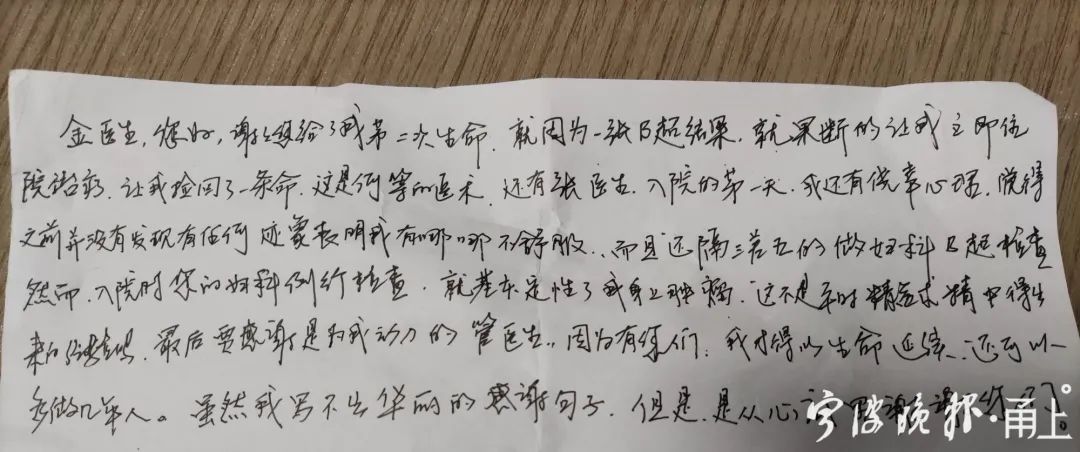 金医生，您好，谢谢您给了我第二次生命，就因为一张B超结果，就果断的让我立即住
院治疗，让我捡回了一条命，这是何等的医术，还有张医生，入院的第一天，我还有侥幸心理，觉得
之前并没有发现有任何迹象表明我有哪哪不舒服，而且还隔三岔五的做妇科B超检查
然而，入院时您的妇科例行检查，就基本定性了我身上肿瘤，这不是平时精益求精中得出
来的经验，最后要感谢是为我动刀的管医生，因为有你们，我才得以生命延续，还可以
多做几年人。虽然我写不出华丽的感谢句子，但是，是从心
宁波晚报·甬上